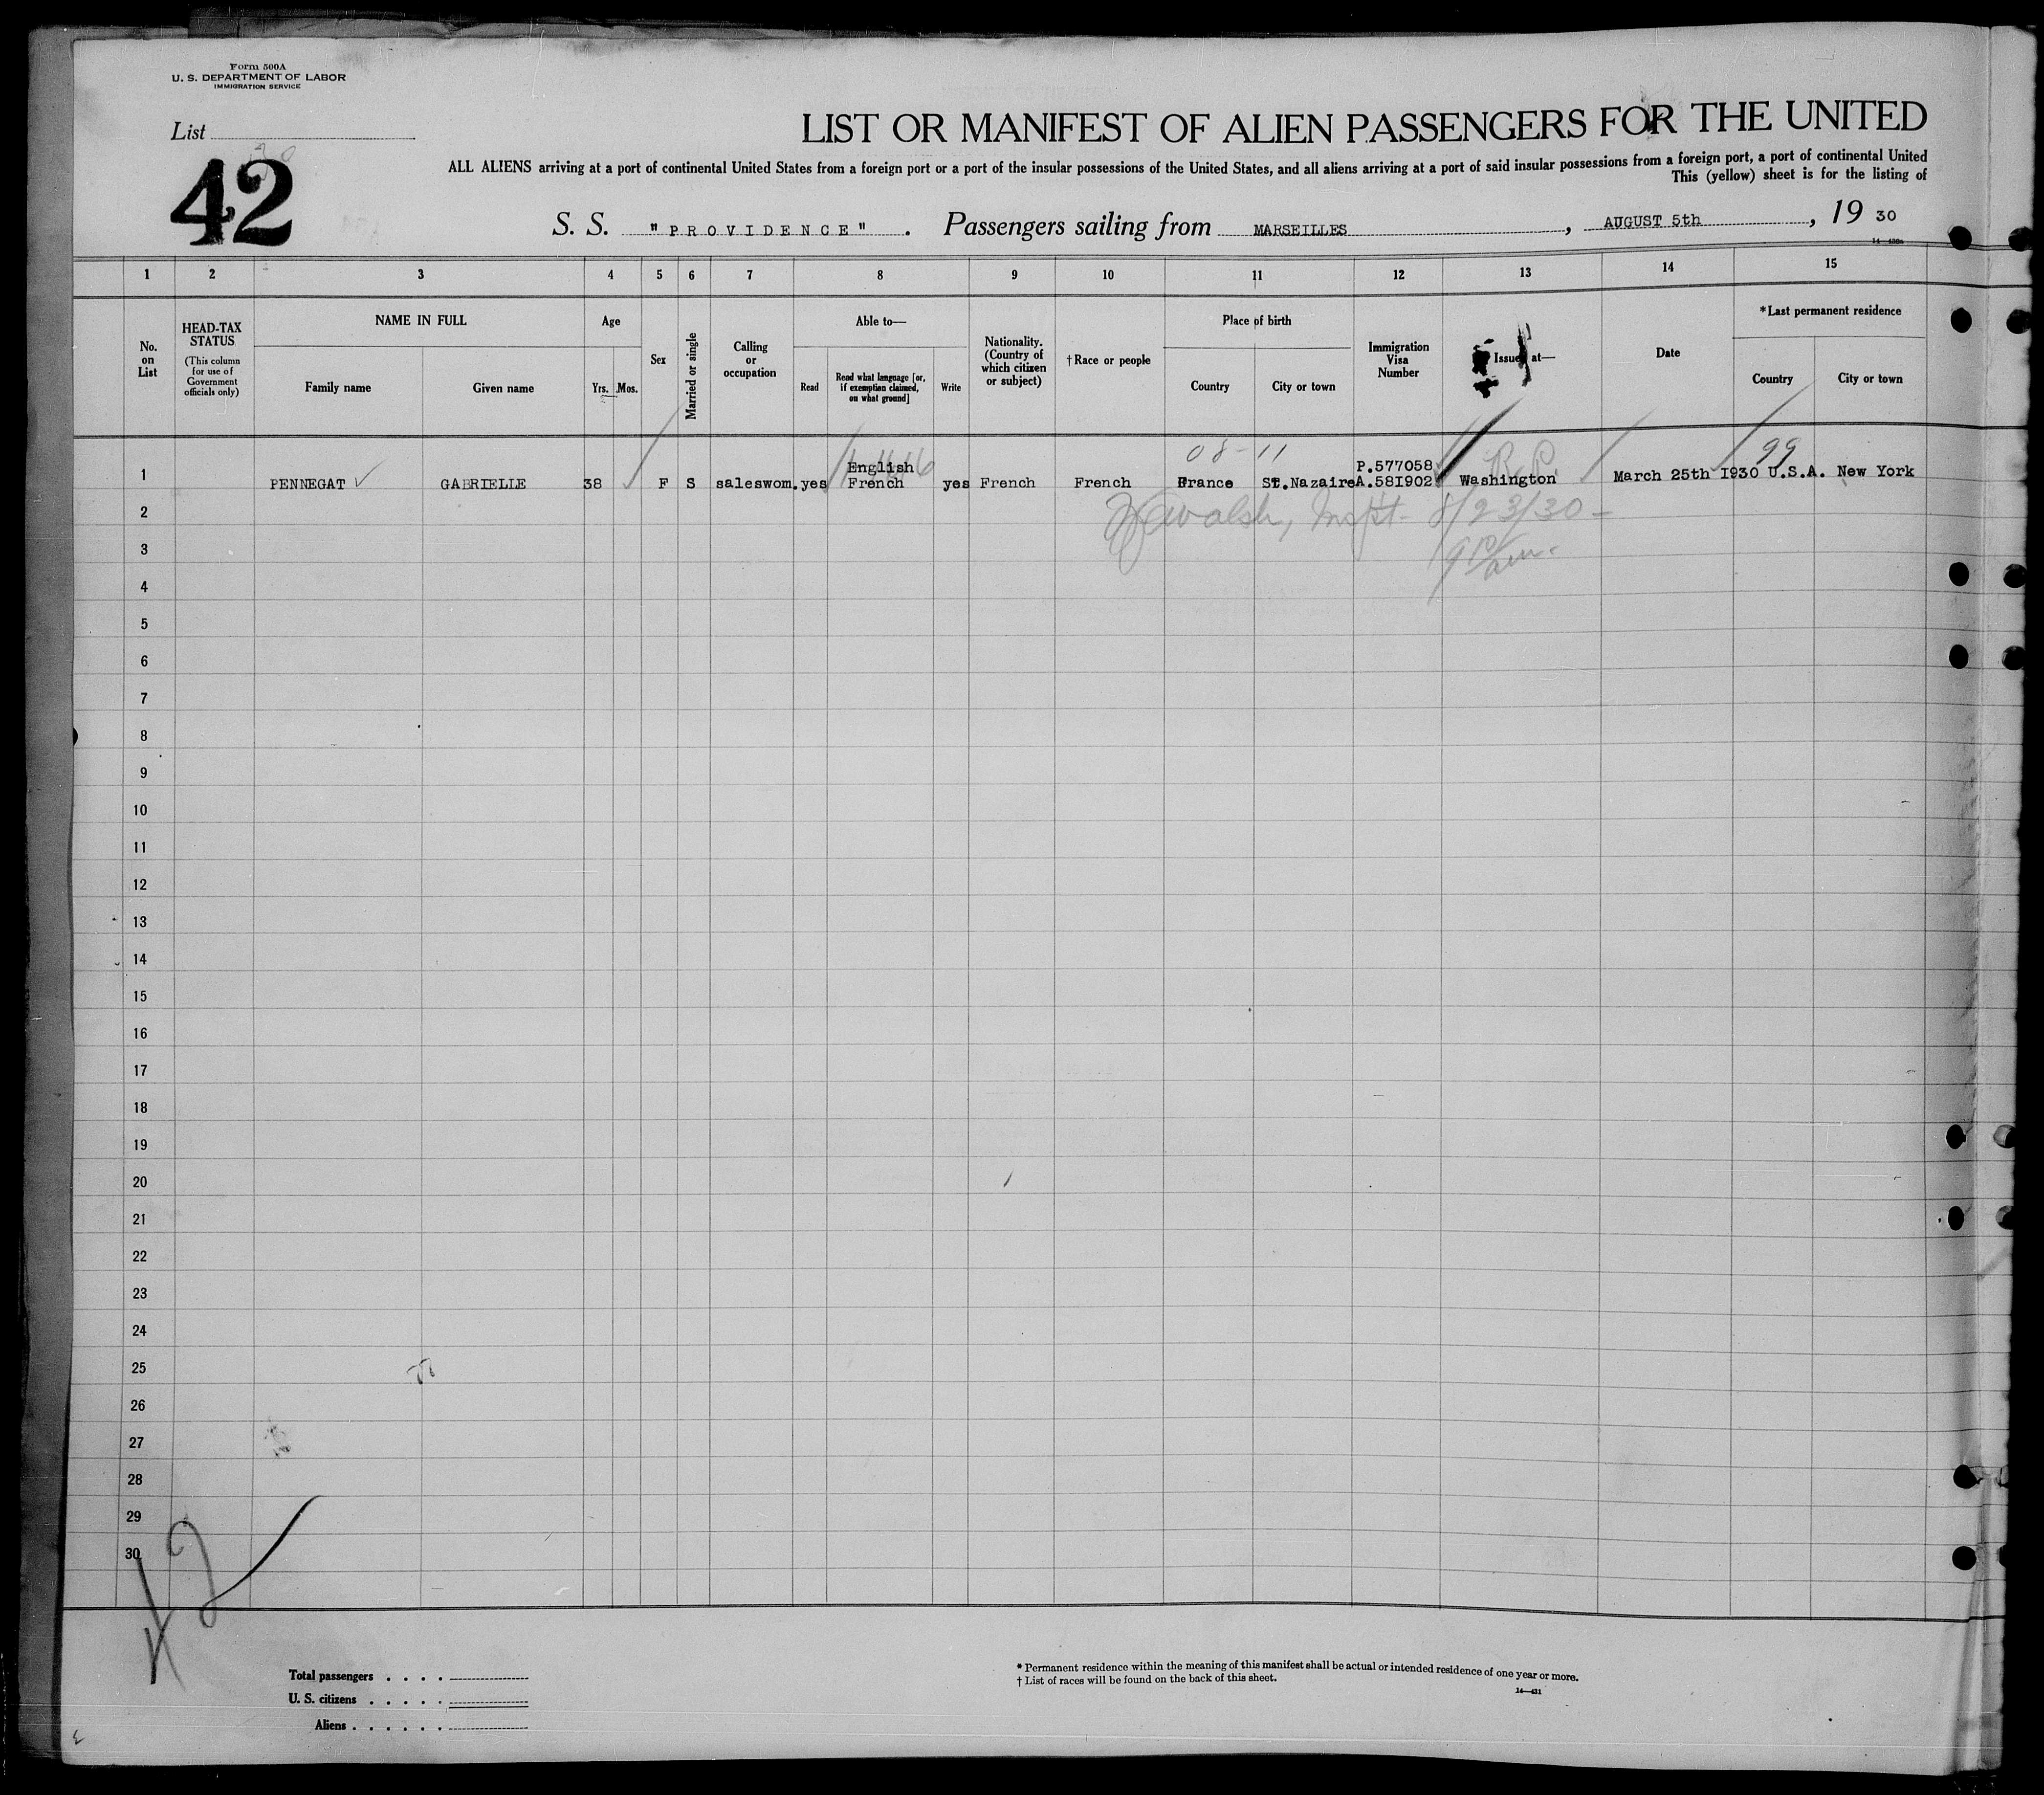 Form 500A
U. S. DEPARTMENT OF LABOR
IMMIGRATION SERVICE
List
42
LIST OR MANIFEST OF ALIEN PASSENGERS FOR THE UNITED
ALL ALIENS arriving at a port of continental United States from a foreign port or a port of the insular possessions of the United States, and all aliens arriving at a port of said insular possessions from a foreign port, a port of continental United
This (yellow) sheet is for the listing of
S. S. "PROVIDENCE". Passengers sailing from MARSEILLES, AUGUST 5th, 19 30
1 2 3 4 5 6 7 8 9 10 11 12 13 14 15
No. on List
HEAD-TAX STATUS
(This column for use of Government officials only)
NAME IN FULL
Family name
Given name
Age
Yrs. Mos.
Sex
Married or single
Calling or occupation
Able to—
Read
Read what language [or, if exemption claimed, on what ground]
Write
Nationality. (Country of which citizen or subject)
†Race or people
Place of birth
Country
City or town
Immigration Visa Number
Issued at—
Date
*Last permanent residence
Country
City or town
08-11
99
English
P.577058
1 PENNEGAT GABRIELLE 38 F S saleswom. yes French yes French French France St.Nazaire A.581902 Washington March 25th 1930 U.S.A. New York
2 Walsh, Inspt. 8/23/30 -
3
4
5
6
7
8
9
10
11
12
13
14
15
16
17
18
19
20
21
22
23
24
25
26
27
28
29
30
42
Total passengers . . . .
U. S. citizens . . . . .
Aliens . . . . . .
* Permanent residence within the meaning of this manifest shall be actual or intended residence of one year or more.
† List of races will be found on the back of this sheet.
14—431